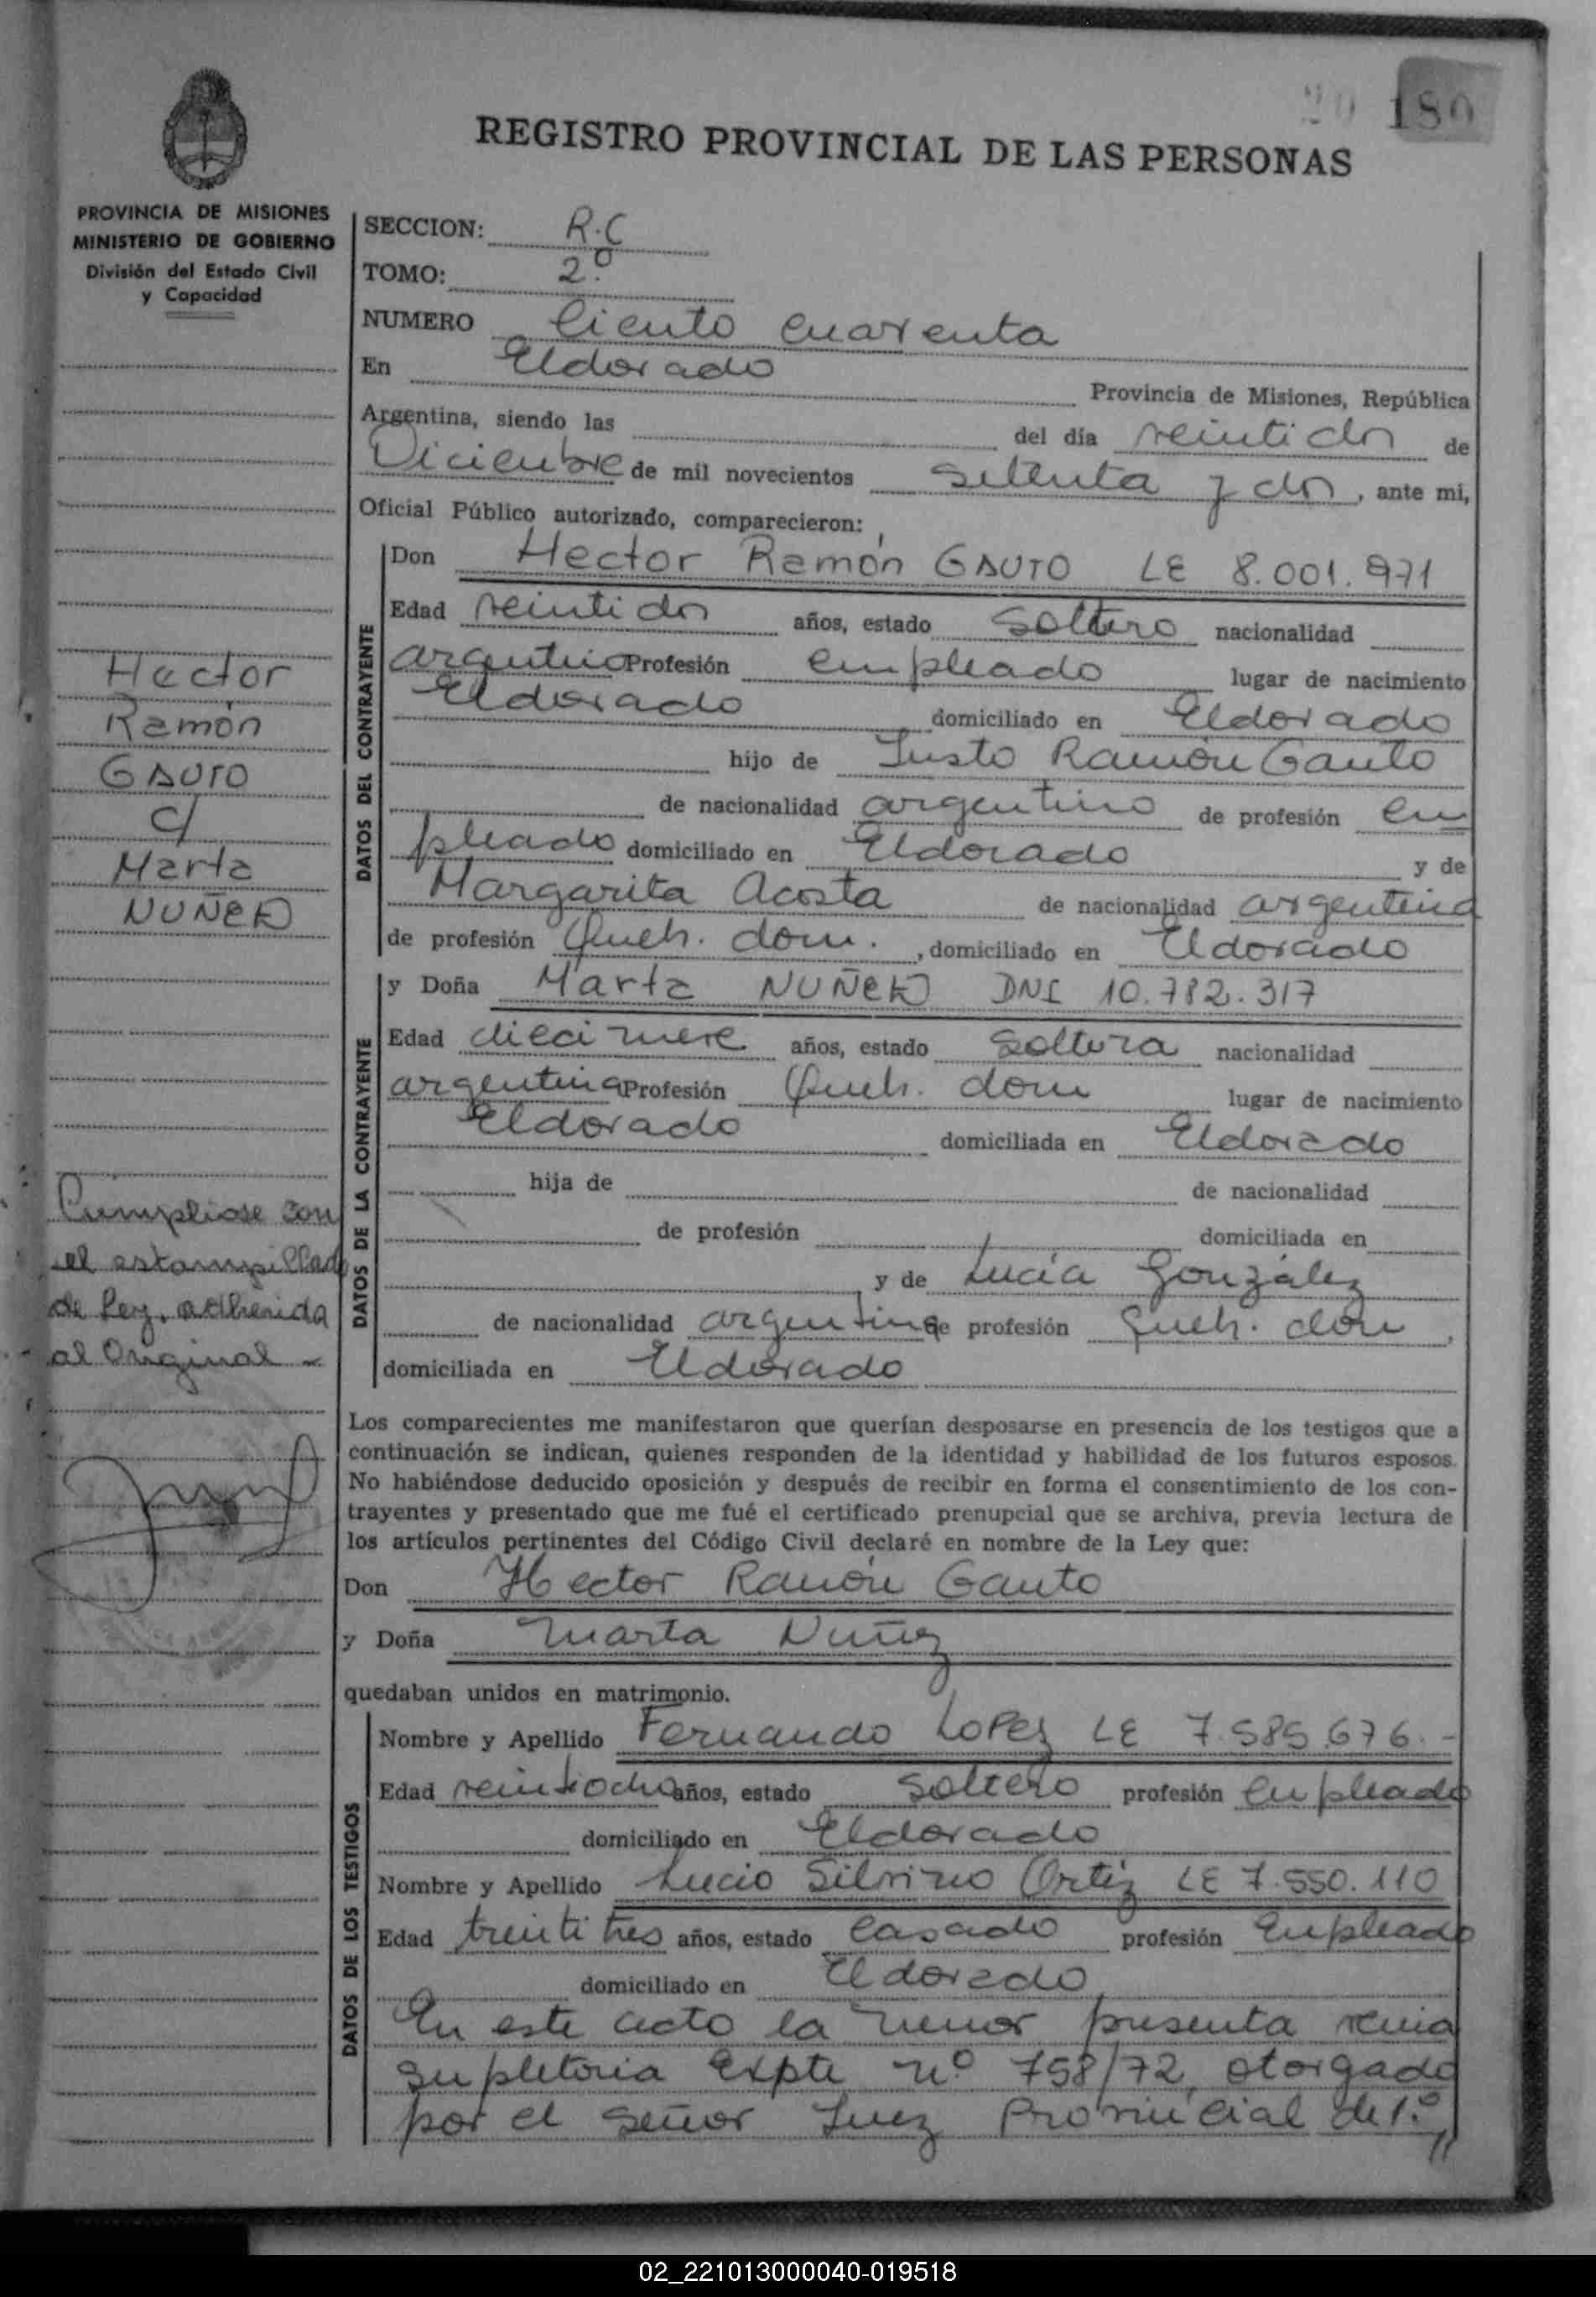 180
REGISTRO PROVINCIAL DE LAS PERSONAS
PROVINCIA DE MISIONES
MINISTERIO DE GOBIERNO
División del Estado Civil
y Capacidad
Hector
Ramón
GAUTO
c/
Marta
NUÑEZ
Cumpliose con
el estampillado
de Ley, adherida
al Original -
SECCION: R.C
TOMO: 2º
NUMERO Ciento cuarenta
En Eldorado Provincia de Misiones, República
Argentina, siendo las del día veintidos de
Diciembre de mil novecientos setenta y dos, ante mi,
Oficial Público autorizado, comparecieron:
DATOS DEL CONTRAYENTE
Don Hector Ramón GAUTO LE 8.001.971
Edad veintidos años, estado soltero nacionalidad
argentino Profesión empleado lugar de nacimiento
Eldorado domiciliado en Eldorado
hijo de Justo Ramón Gauto
de nacionalidad argentino de profesión em
pleado domiciliado en Eldorado y de
Margarita Acosta de nacionalidad argentina
de profesión Queh. dom., domiciliado en Eldorado
DATOS DE LA CONTRAYENTE
y Doña Marta NUÑEZ DNI 10.782.317
Edad diecinueve años, estado soltera nacionalidad
argentina Profesión Queh. dom lugar de nacimiento
Eldorado domiciliada en Eldorado
hija de de nacionalidad
de profesión domiciliada en
y de Lucía González
de nacionalidad argentina de profesión Queh. dom,
domiciliada en Eldorado
Los comparecientes me manifestaron que querían desposarse en presencia de los testigos que a
continuación se indican, quienes responden de la identidad y habilidad de los futuros esposos.
No habiéndose deducido oposición y después de recibir en forma el consentimiento de los con-
trayentes y presentado que me fué el certificado prenupcial que se archiva, previa lectura de
los artículos pertinentes del Código Civil declaré en nombre de la Ley que:
Don Hector Ramón Gauto
y Doña Marta Nuñez
quedaban unidos en matrimonio.
DATOS DE LOS TESTIGOS
Nombre y Apellido Fernando Lopez LE 7.585.676.-
Edad veintiocho años, estado soltero profesión empleado
domiciliado en Eldorado
Nombre y Apellido Lucio Silvino Ortiz LE 7.550.110
Edad treinti tres años, estado casado profesión Empleado
domiciliado en Eldorado
En este acto la menor presenta venia
supletoria Expte nº 758/72, otorgado
por el señor Juez Provincial de 1º //
02_221013000040-019518